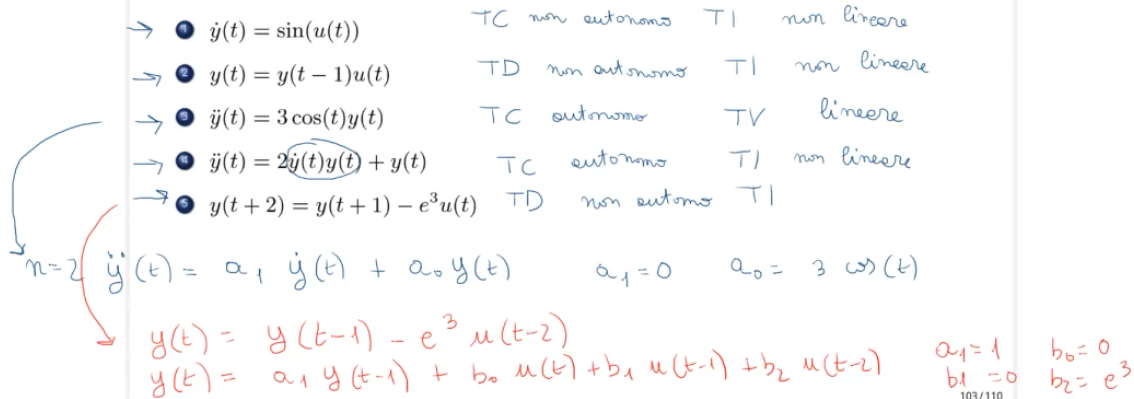 → 1 ẏ(t) = sin(u(t)) TC non autonomo TI non lineare
→ 2 y(t) = y(t − 1)u(t) TD non autonomo TI non lineare
→ 3 ÿ(t) = 3 cos(t)y(t) TC autonomo TV lineare
→ 4 ÿ(t) = 2ẏ(t)y(t) + y(t) TC autonomo TI non lineare
→ 5 y(t + 2) = y(t + 1) − e³u(t) TD non automo TI
n=2 ÿ(t) = a₁ ẏ(t) + a₀ y(t) a₁=0 a₀= 3 cos(t)
y(t) = y(t-1) - e³ u(t-2)
y(t) = a₁ y(t-1) + b₀ u(t) + b₁ u(t-1) + b₂ u(t-2) a₁=1 b₀=0
b1 =0 b₂= e³
103/110